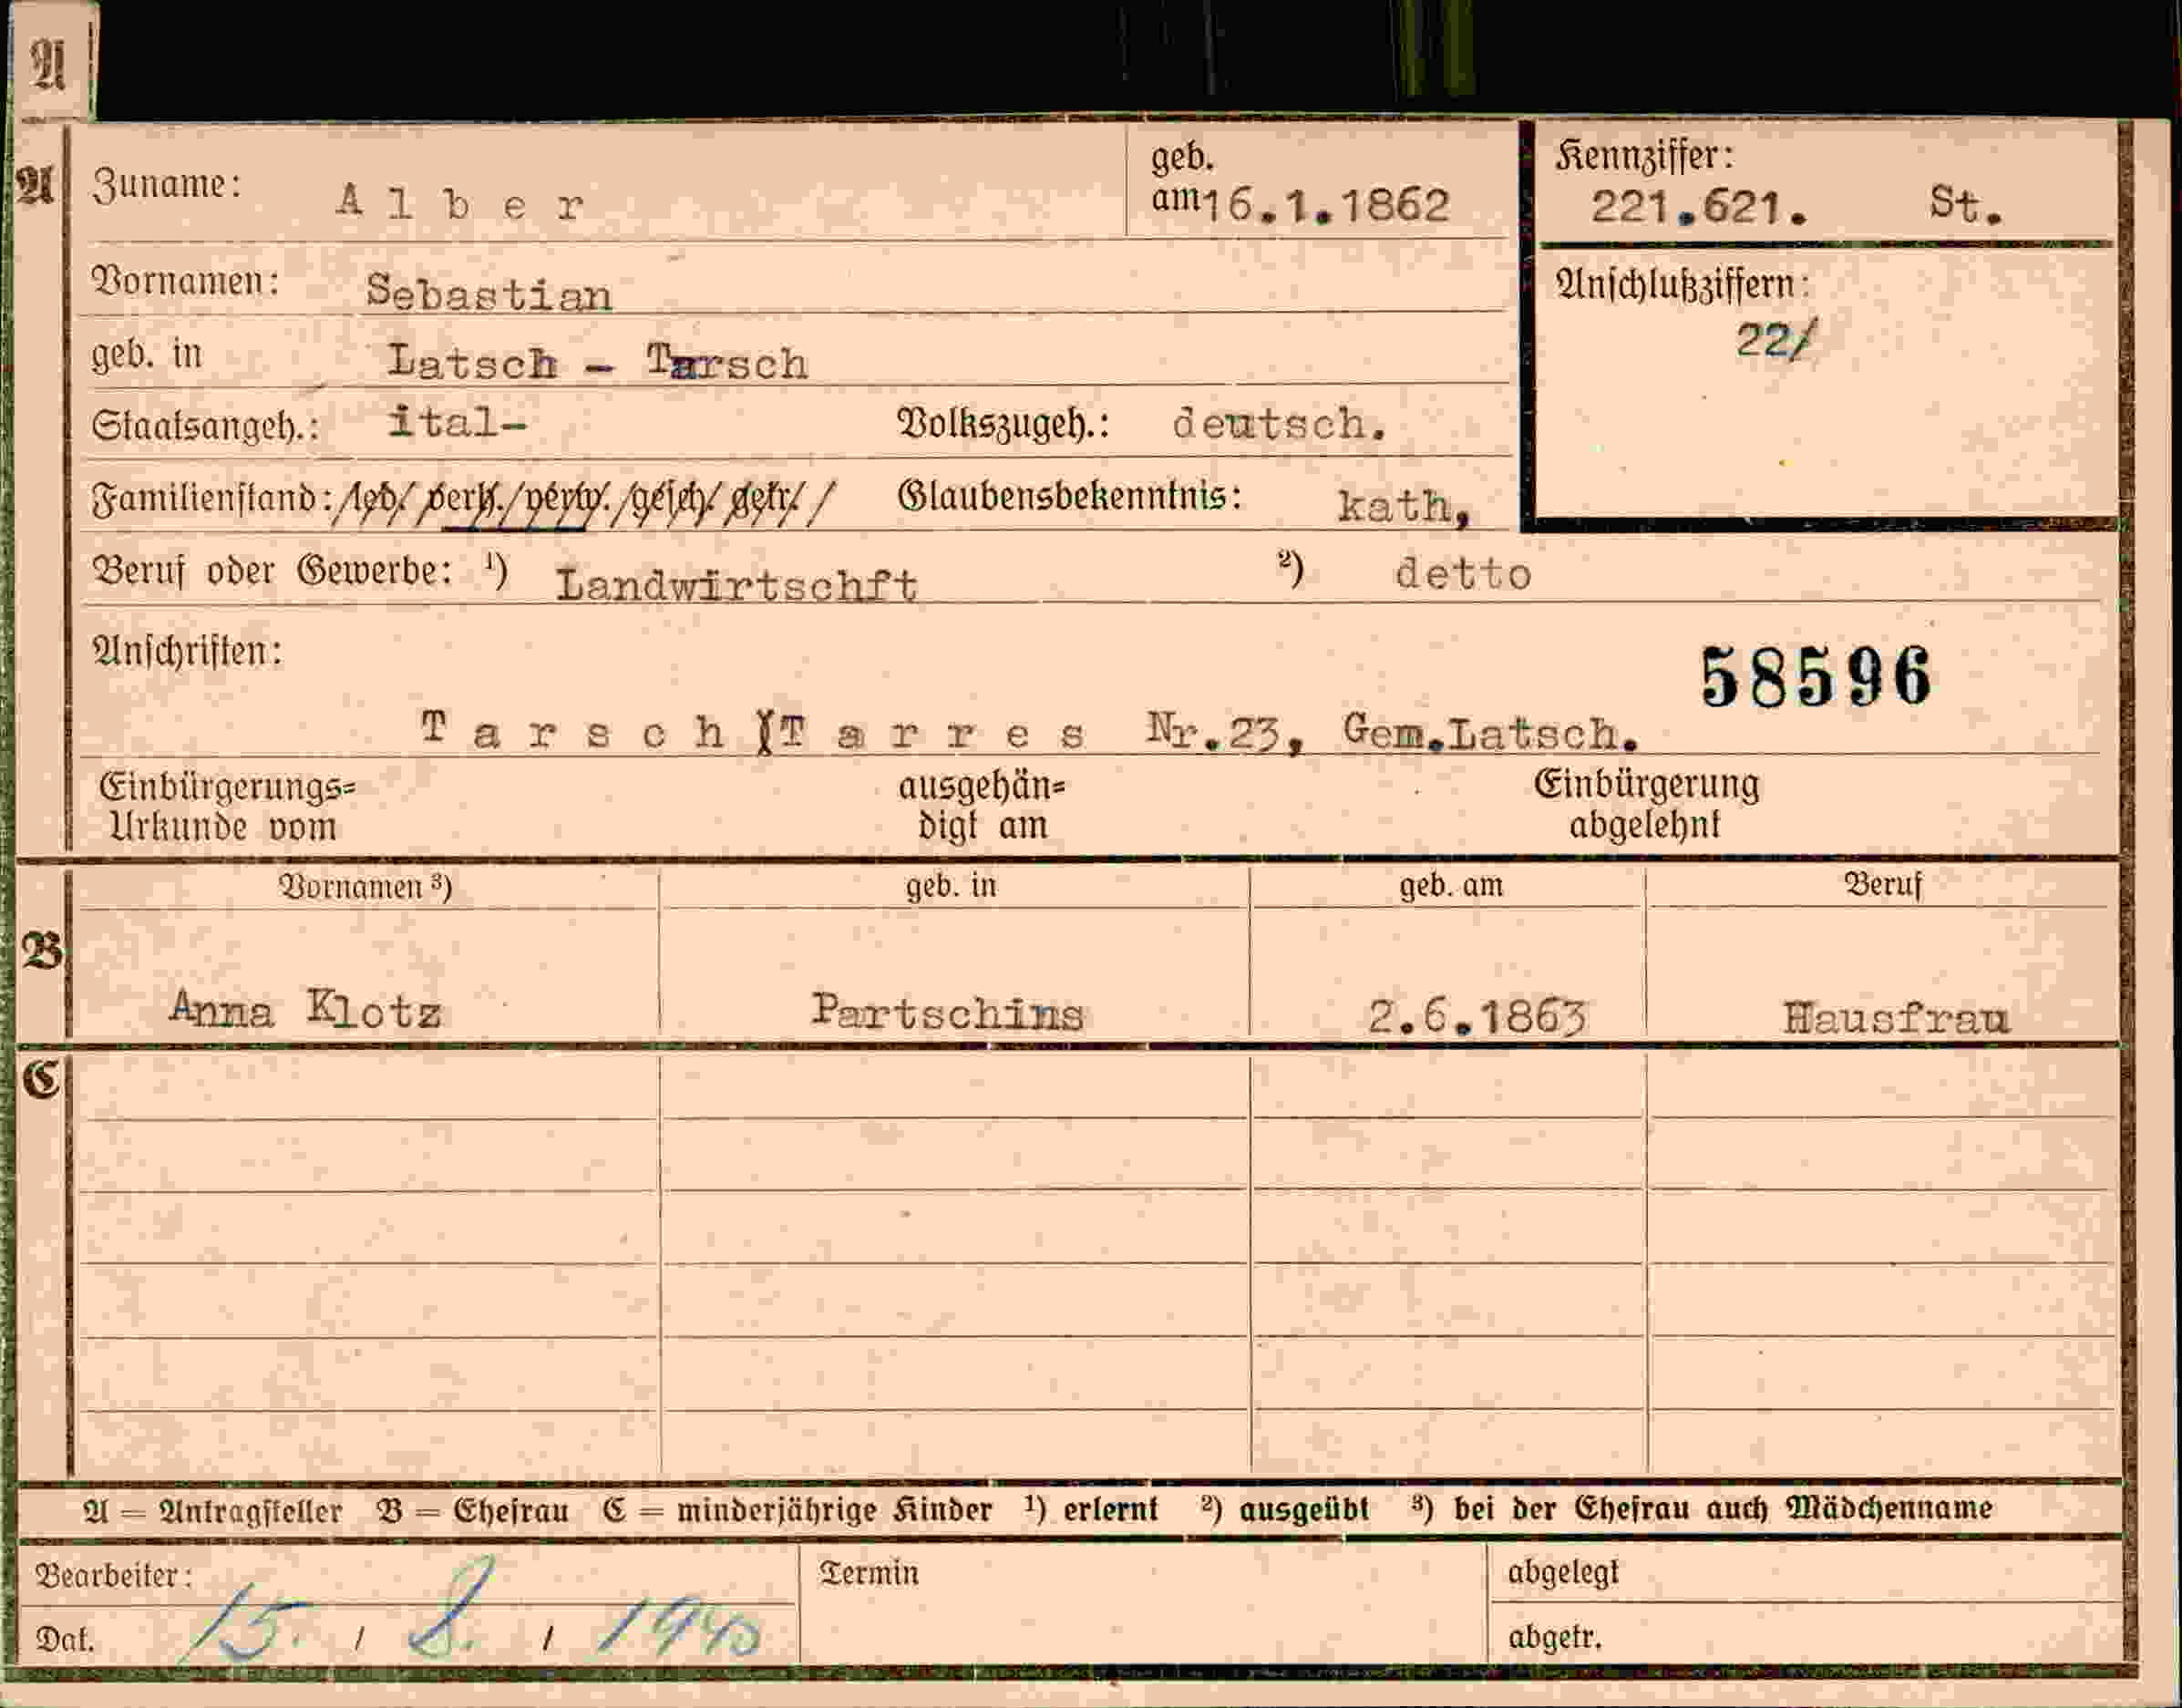 A
A Zuname: Alber geb. am 16.1.1862 Kennziffer: 221.621. St.
Vornamen: Sebastian Anschlußziffern: 22/
geb. in Latsch - Tarsch
Staatsangeh.: ital- Volkszugeh.: deutsch.
Familienstand: /led/ verh./ verw./ gesch/ getr/ / Glaubensbekenntnis: kath,
Beruf oder Gewerbe: ¹) Landwirtschft ²) detto
Anschriften: 58596
Tarsch Tarres Nr.23, Gem.Latsch.
Einbürgerungs= Urkunde vom ausgehän= digt am Einbürgerung abgelehnt
Vornamen ³) geb. in geb. am Beruf
B Anna Klotz Partschins 2.6.1863 Hausfrau
C
A = Antragsteller B = Ehefrau C = minderjährige Kinder ¹) erlernt ²) ausgeübt ³) bei der Ehefrau auch Mädchenname
Bearbeiter: Termin abgelegt
Dat. 15. / 8. / 1940 abgetr.